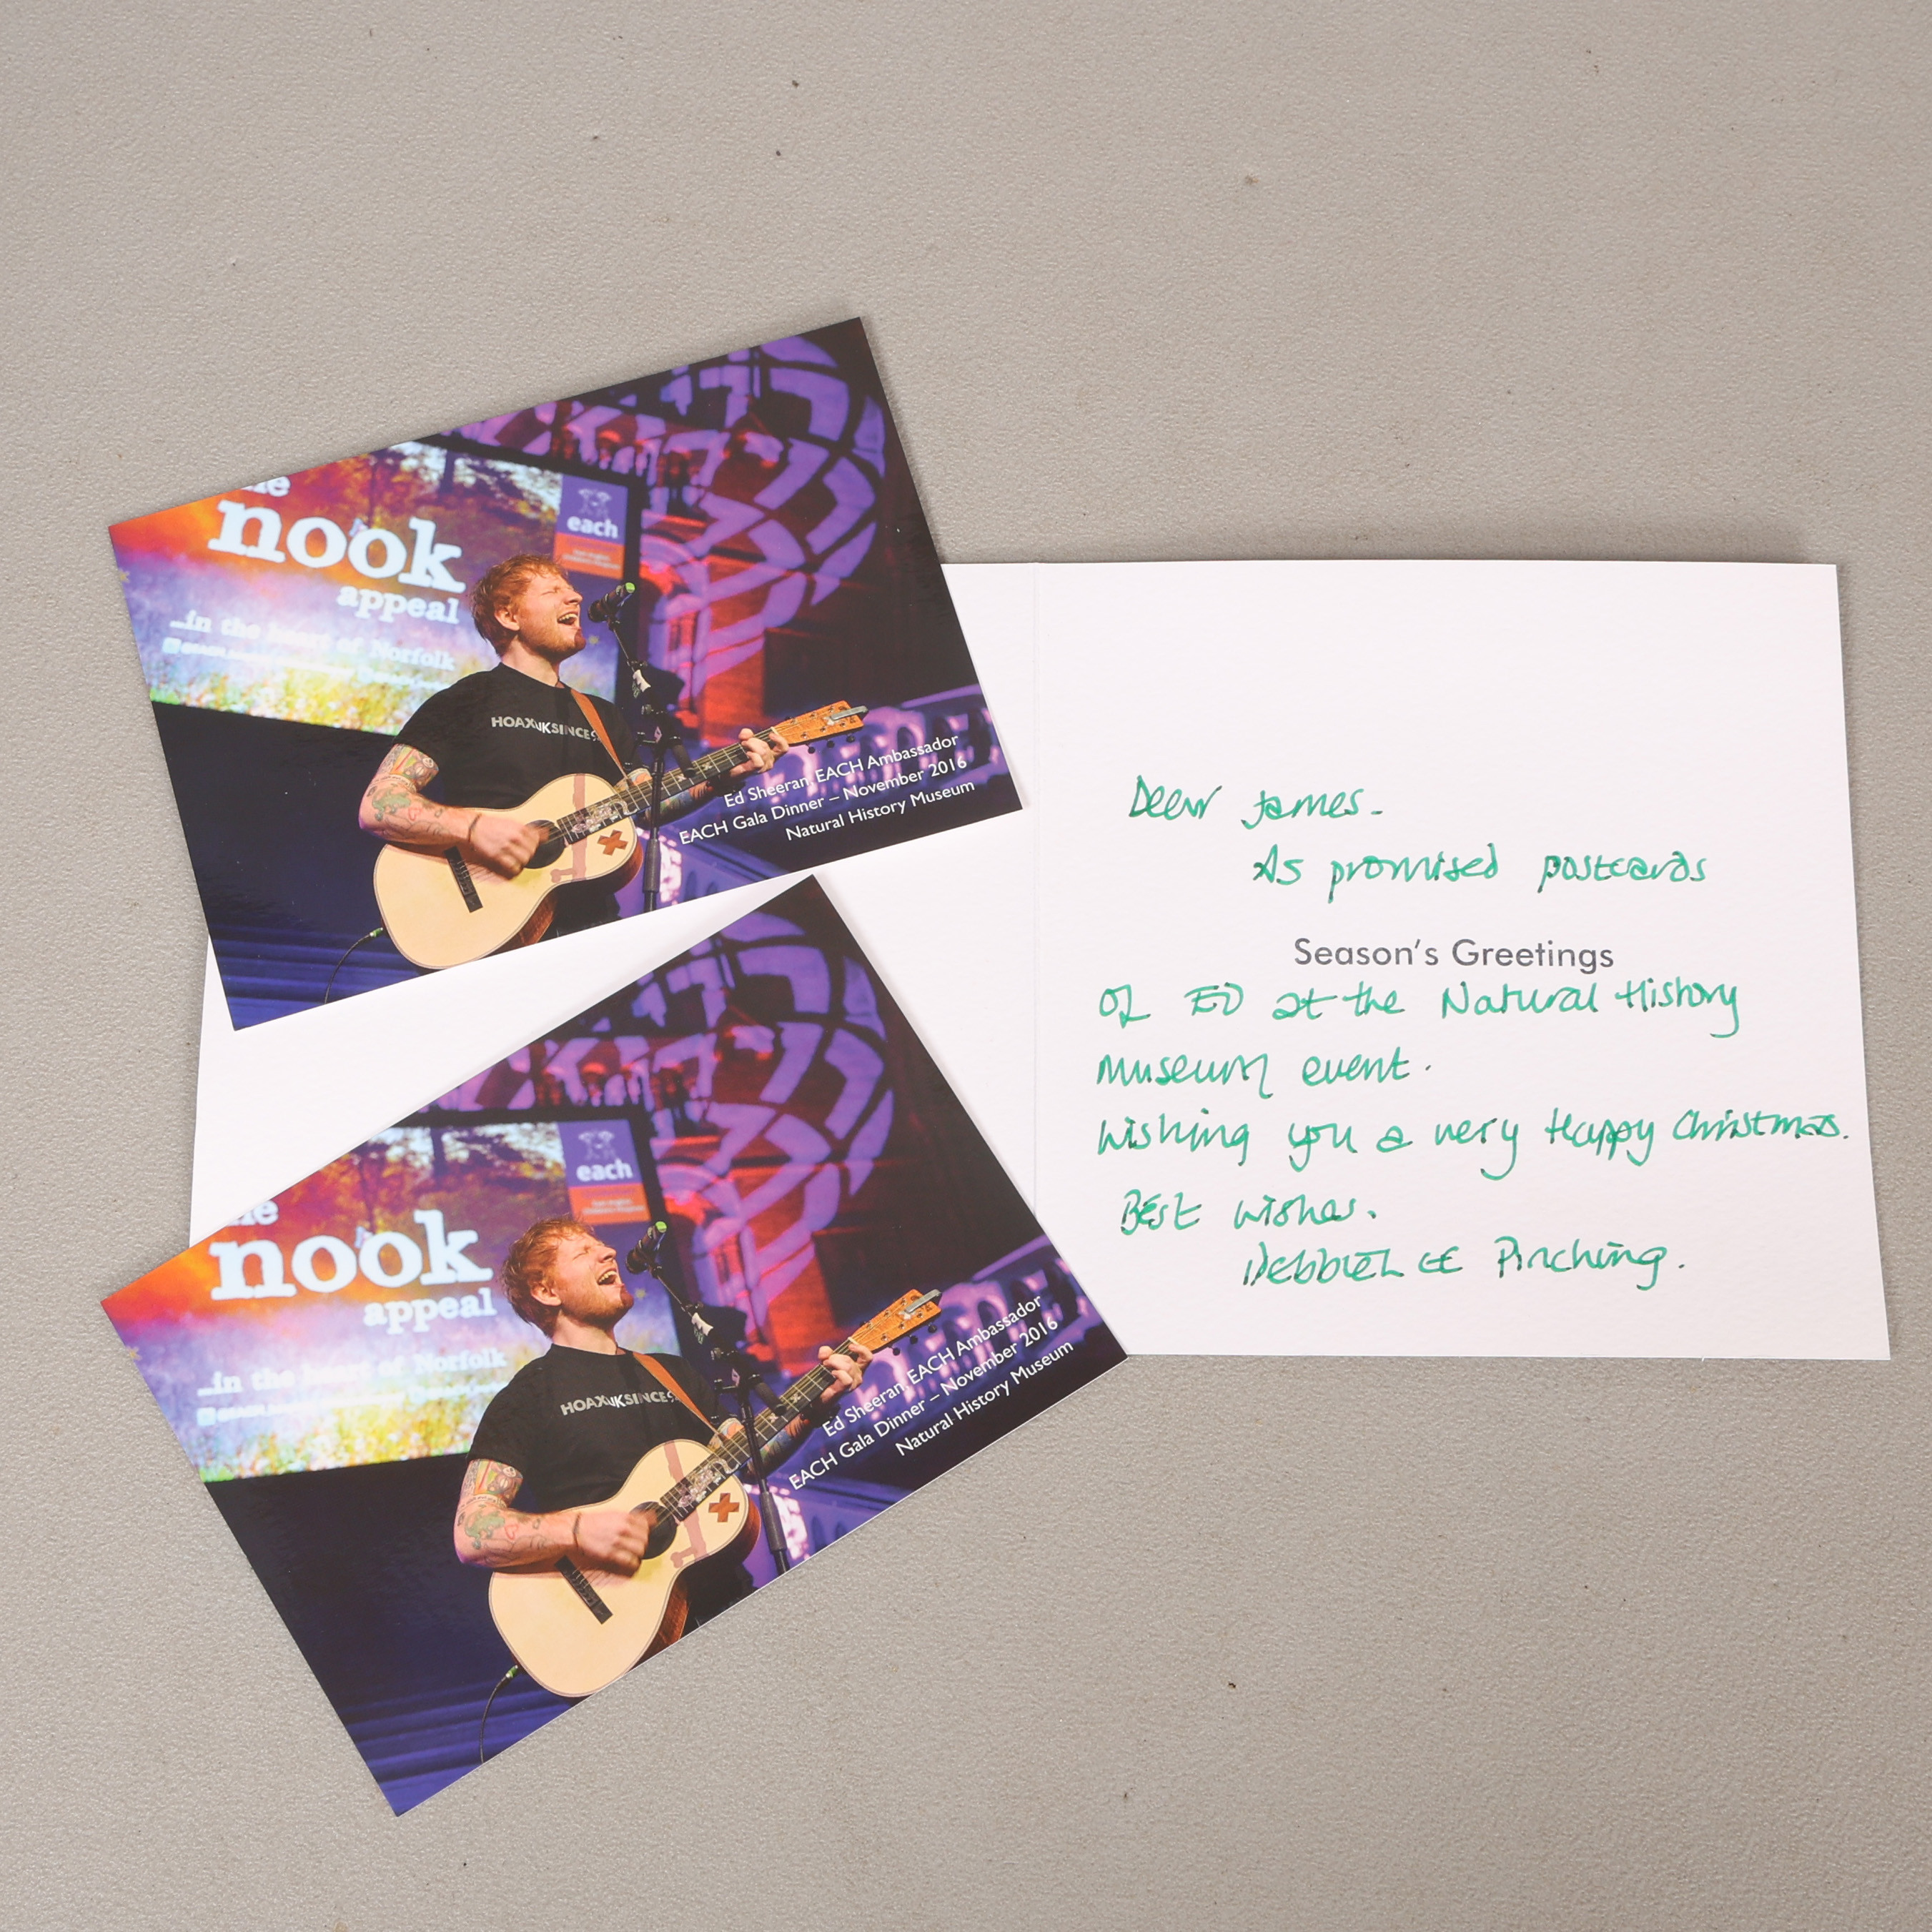 he
nook
appeal
...in the heart of Norfolk
each
HOAXUKSINCE9
Ed Sheeran, EACH Ambassador
EACH Gala Dinner – November 2016
Natural History Museum
he
nook
appeal
...in the heart of Norfolk
each
HOAXUKSINCE9
Ed Sheeran, EACH Ambassador
EACH Gala Dinner – November 2016
Natural History Museum
Dear James.
As promised postcards
Season's Greetings
of ED at the Natural History
Museum event.
Wishing you a very Happy Christmas.
Best wishes.
Pinching.